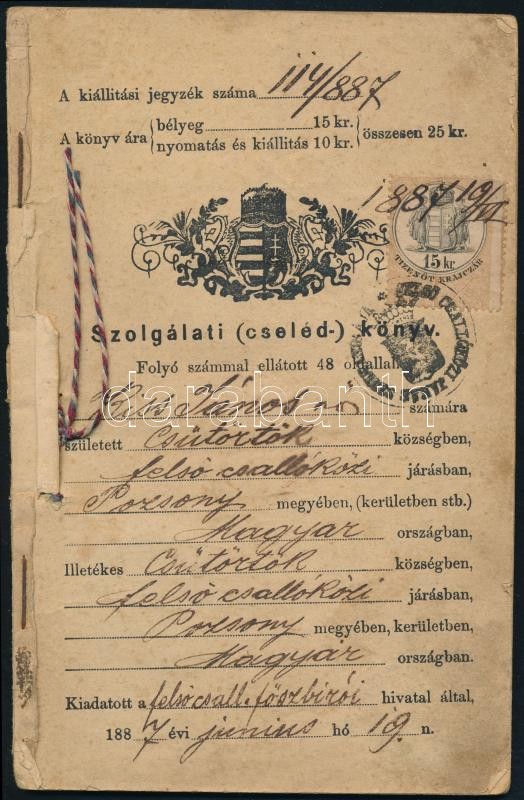 A kiállitási jegyzék száma 114/887
A könyv ára { bélyeg 15 kr. } összesen 25 kr.
nyomatás és kiállitás 10 kr.
1887 19/VI
15 kr
TIZENÖT KRAJCZÁR
Szolgálati (cseléd-) könyv.
Folyó számmal ellátott 48 oldallal
darabanth
Kiss János számára
született Csütörtök községben,
felső csallóközi járásban,
Pozsony megyében, (kerületben stb.)
Magyar országban,
Illetékes Csütörtök községben,
felső csallóközi járásban,
Pozsony megyében, kerületben,
Magyar országban.
Kiadatott a felső csall. főszbirói hivatal által,
1887 évi junius hó 19. n.